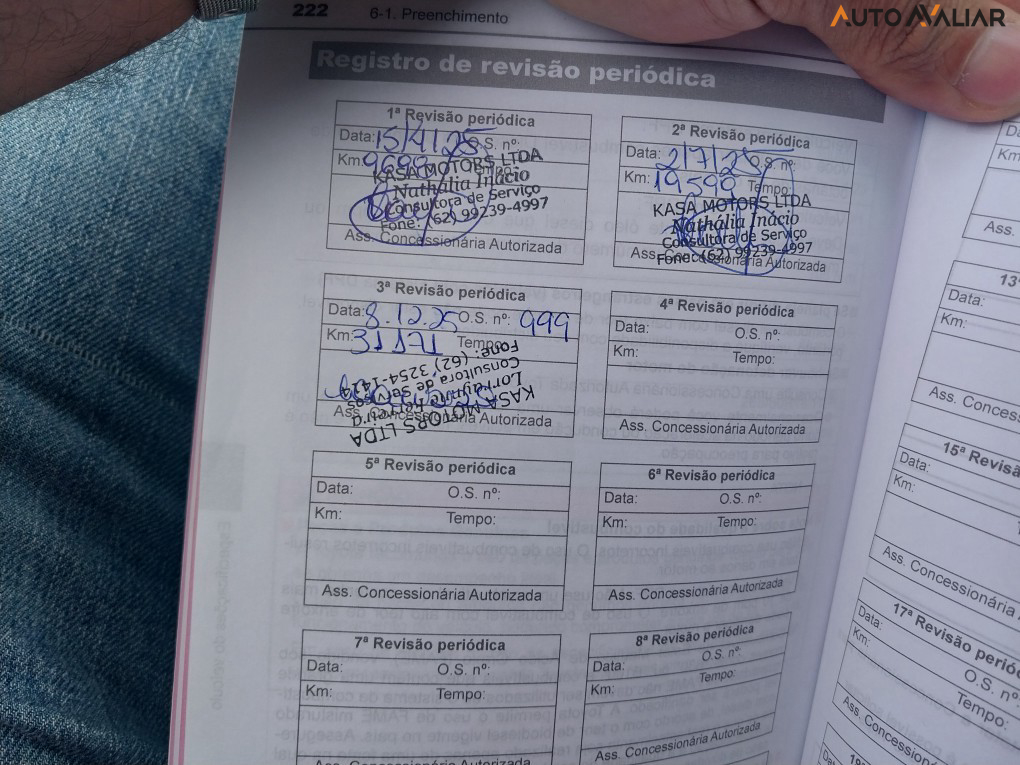 AUTOAVALIAR
222 6-1. Preenchimento
Registro de revisão periódica
1ª Revisão periódica
Data: 15/4/25 O.S. nº:
Km: 9699 Tempo:
KASA MOTORS LTDA
Nathália Inácio
Consultora de Serviço
Fone: (62) 99239-4997
Ass. Concessionária Autorizada
2ª Revisão periódica
Data: 2/7/25 O.S. nº:
Km: 19590 Tempo:
KASA MOTORS LTDA
Nathália Inácio
Consultora de Serviço
Fone: (62) 99239-4997
Ass. Concessionária Autorizada
3ª Revisão periódica
Data: 8.12.25 O.S. nº: 999
Km: 31171 Tempo:
KASA MOTORS LTDA
Consultora de Serviços
Fone: (62) 3254-141
Ass. Concessionária Autorizada
4ª Revisão periódica
Data: O.S. nº:
Km: Tempo:
Ass. Concessionária Autorizada
5ª Revisão periódica
Data: O.S. nº:
Km: Tempo:
Ass. Concessionária Autorizada
6ª Revisão periódica
Data: O.S. nº:
Km: Tempo:
Ass. Concessionária Autorizada
7ª Revisão periódica
Data: O.S. nº:
Km: Tempo:
Ass. Concessionária Autorizada
8ª Revisão periódica
Data: O.S. nº:
Km: Tempo:
Ass. Concessionária Autorizada
Data:
Km:
Ass.
13ª
Data:
Km:
Ass. Concess
15ª Revisã
Data:
Km:
Ass. Concessionária
17ª Revisão perió
Data: O.S. nº
Km: Tempo:
Ass. Concessioná
Data: